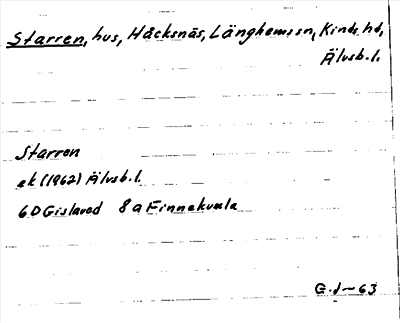 Starren, hus, Häcksnäs, Länghems sn, Kinds hd,
Älvsb. l.
Starren
ek (1962) Älvsb. l.
6D Gislaved 8 a Finnekumla
G. J-63